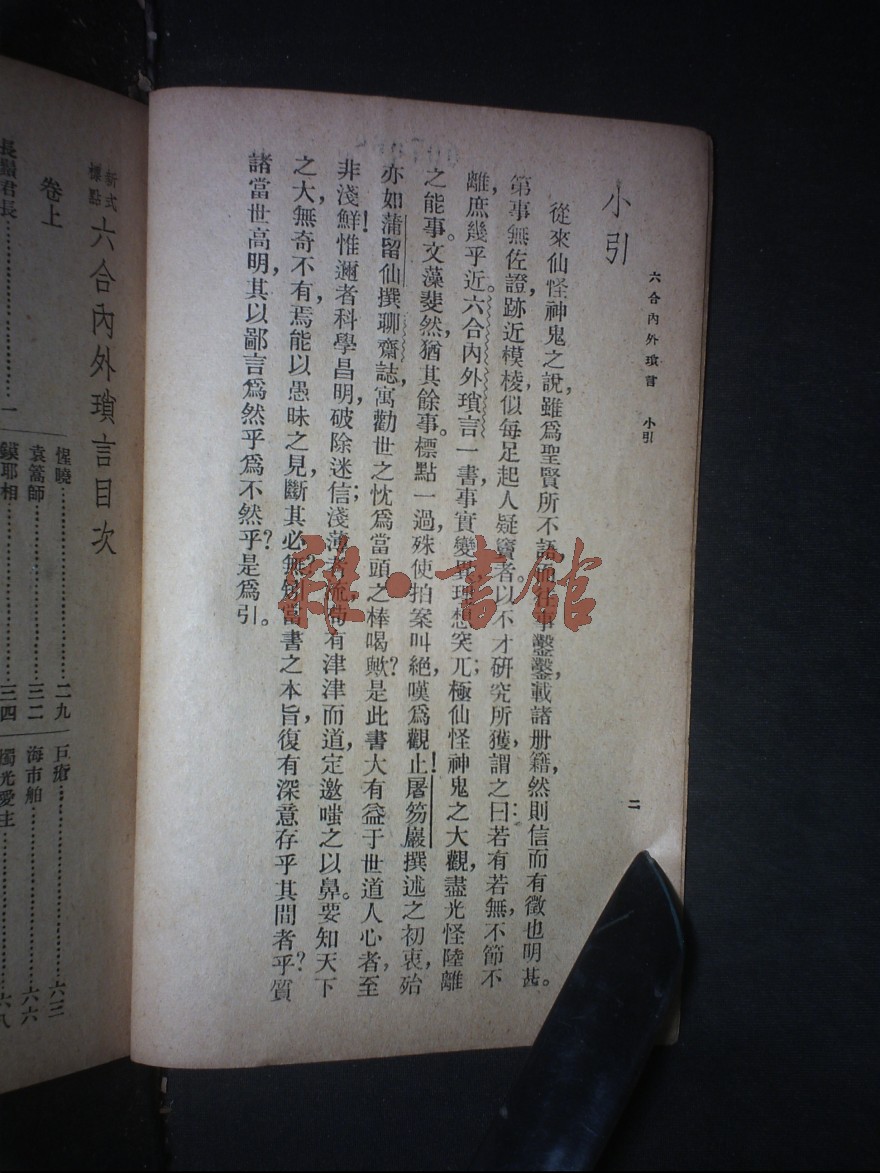 六合內外瑣言　小引
二
小引
從來仙怪神鬼之說，雖爲聖賢所不語，而往事鑿鑿，載諸册籍，然則信而有徵也明甚。
第事無佐證，跡近模棱，似每足起人疑竇者。以不才硏究所獲，謂之曰：若有若無，不節不
離，庶幾乎近。六合內外瑣言一書，事實變異，理想突兀；極仙怪神鬼之大觀，盡光怪陸離
之能事。文藻斐然，猶其餘事。標點一過，殊使拍案叫絕，嘆爲觀止！屠笏巖撰述之初衷，殆
亦如蒲留仙撰聊齋誌，寓勸世之忱，爲當頭之棒喝歟？是此書大有益于世道人心者，至
非淺鮮！惟邇者科學昌明，破除迷信；淺薄者流，苟有津津而道，定邀嗤之以鼻。要知天下
之大，無奇不有，焉能以愚昧之見，斷其必無？矧當書之本旨，復有深意存乎其間者乎？質
諸當世高明，其以鄙言爲然乎？爲不然乎？是爲引。
雜·書館
新式標點 六合內外瑣言目次
卷上
長鬚君長…………一
惺曉…………二九
袁篙師…………三二
鏌耶相…………三四
巨瘡…………六三
海市舶…………六六
燭光愛主…………六八